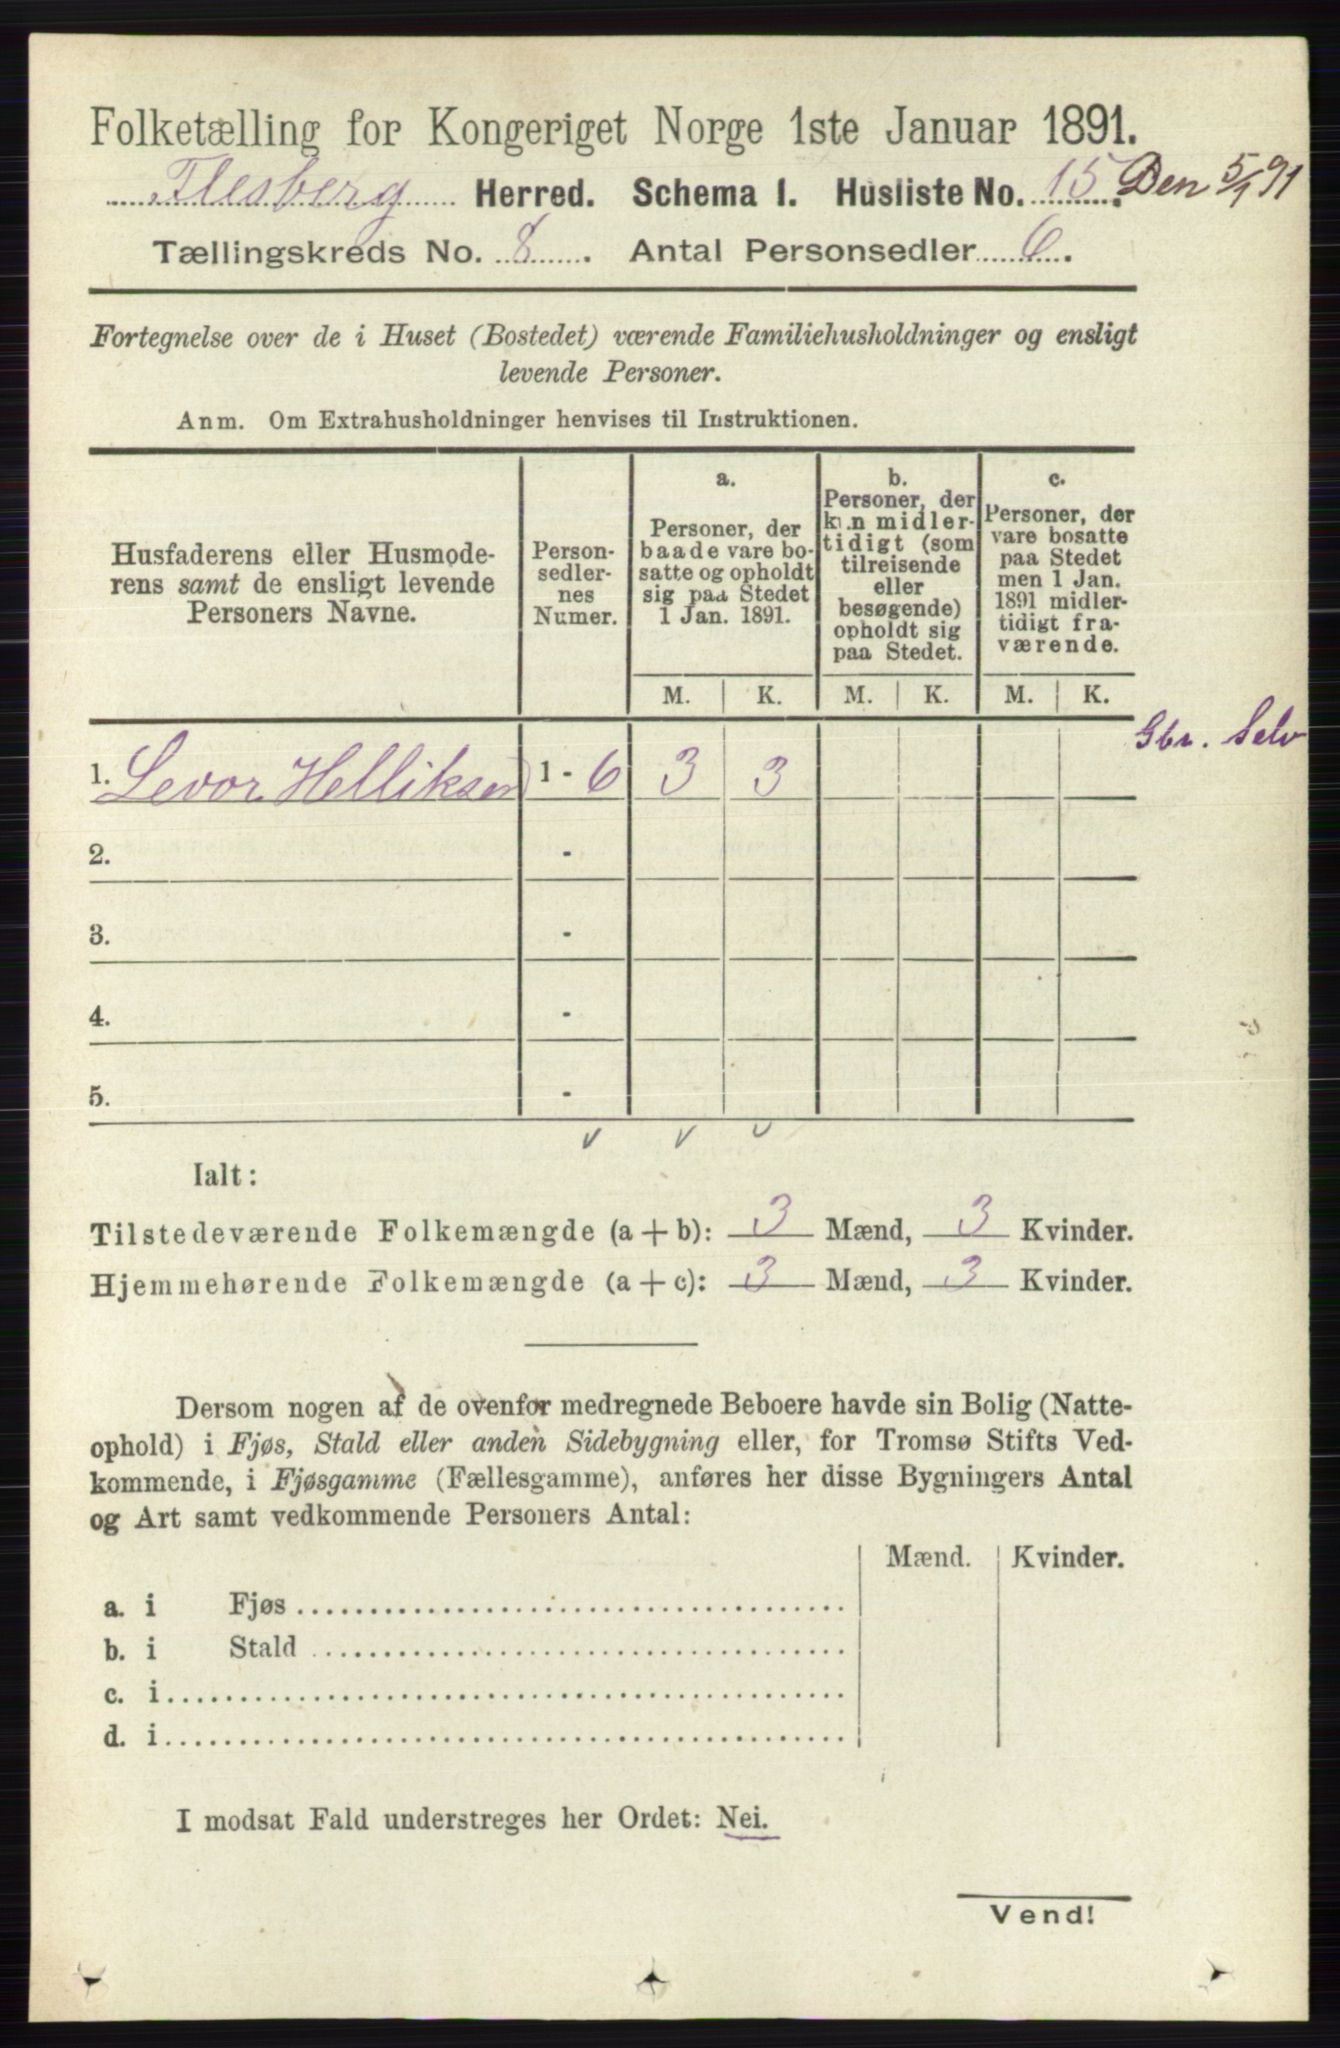 Folketælling for Kongeriget Norge 1ste Januar 1891.
Flesberg Herred. Schema I. Husliste No. 15. Den 5/1 91
Tællingskreds No. 8. Antal Personsedler 6.
Fortegnelse over de i Huset (Bostedet) værende Familiehusholdninger og ensligt
levende Personer.
Anm. Om Extrahusholdninger henvises til Instruktionen.
Husfaderens eller Husmode-
rens samt de ensligt levende
Personers Navne.
Person-
sedler-
nes
Numer.
a.
Personer, der
baade vare bo-
satte og opholdt
sig paa Stedet
1 Jan. 1891.
b.
Personer, der
kun midler-
tidigt (som
tilreisende
eller
besøgende)
opholdt sig
paa Stedet.
c.
Personer, der
vare bosatte
paa Stedet
men 1 Jan.
1891 midler-
tidigt fra-
værende.
M. K. M. K. M. K.
Gbr. Selv
1. Levor Helliksen 1 - 6 3 3
2. -
3. -
4. -
5. -
Ialt:
Tilstedeværende Folkemængde (a + b): 3 Mænd, 3 Kvinder.
Hjemmehørende Folkemængde (a + c): 3 Mænd, 3 Kvinder.
Dersom nogen af de ovenfor medregnede Beboere havde sin Bolig (Natte-
ophold) i Fjøs, Stald eller anden Sidebygning eller, for Tromsø Stifts Ved-
kommende, i Fjøsgamme (Fællesgamme), anføres her disse Bygningers Antal
og Art samt vedkommende Personers Antal:
Mænd. Kvinder.
a. i Fjøs
b. i Stald
c. i
d. i
I modsat Fald understreges her Ordet: Nei.
Vend!